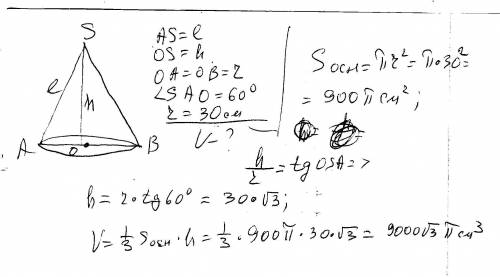 S
l
h
A
O
B
AS=l
OS=h
OA=OB=r
∠SAO=60°
r=30 см
V=?
Sосн=πr²=π·30²=
=900π см²;
h/r=tg OSA=>
h=r·tg60°=30·√3;
V=1/3 Sосн·h=1/3·900π·30·√3=9000√3 π см³